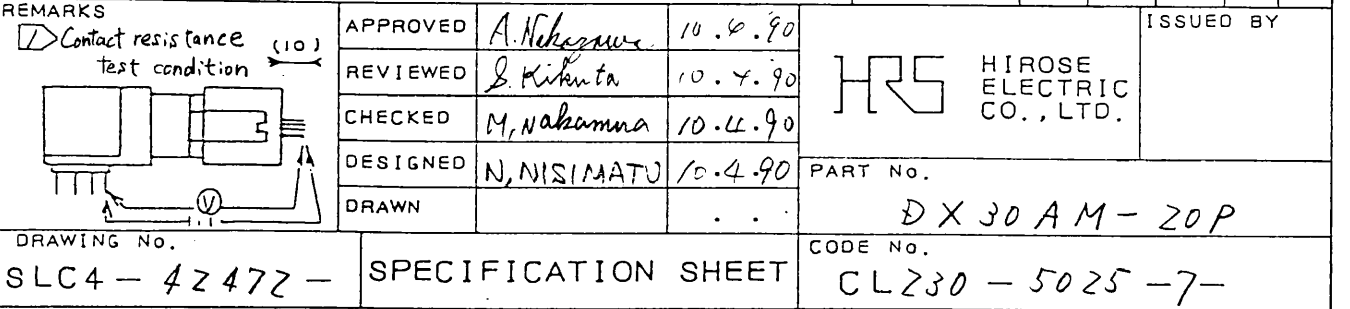 REMARKS
1 Contact resistance
test condition (10)
V
APPROVED A. Nakazawa 10.4.90
REVIEWED S. Kikuta 10.4.90
CHECKED M, Nakamura 10.4.90
DESIGNED N, NISIMATU 10.4.90
DRAWN . .
HRS
HIROSE
ELECTRIC
CO., LTD.
ISSUED BY
PART No.
DX30AM-20P
DRAWING No.
SLC4-42472-
SPECIFICATION SHEET
CODE No.
CL230-5025-7-